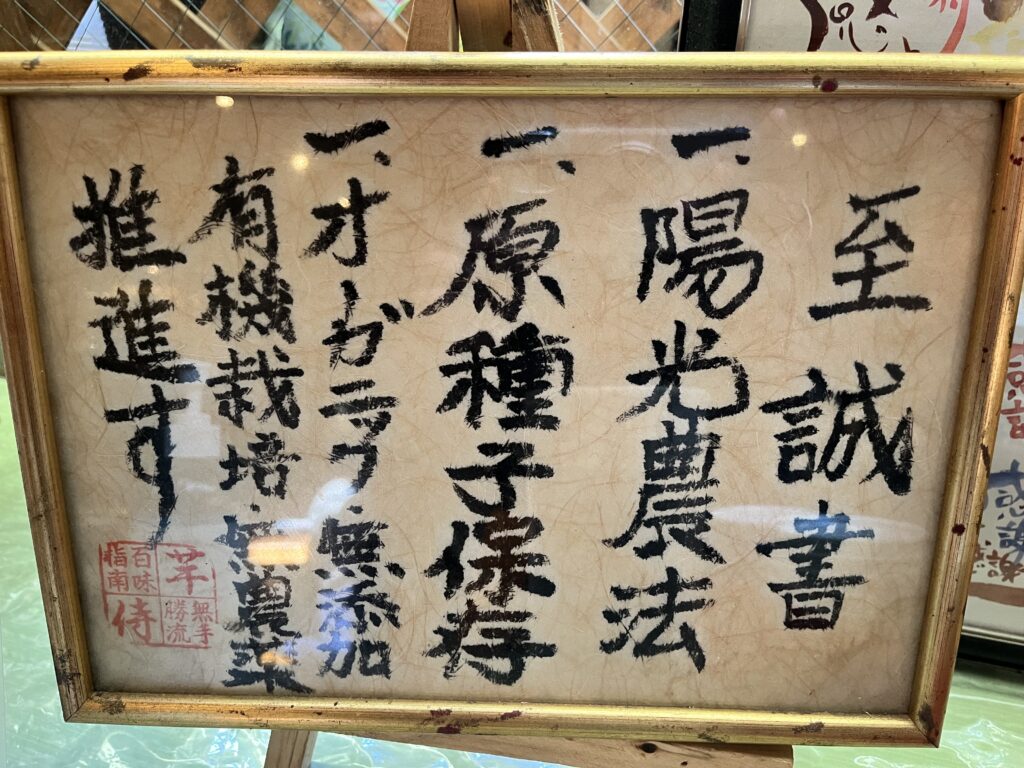 至誠書
一、陽光農法
一、原種子保存
一、オガニック・無添加
有機栽培・無農薬
推進す
百味
指南
侍
芋
無手
勝流